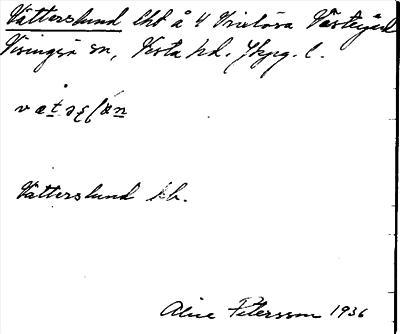 Vätterslund lht å 4 Vretösa Västergård
Visingsö sn, Vista hd. Jkpg. l.
Vätterslund kb.
Alice Petersson 1936